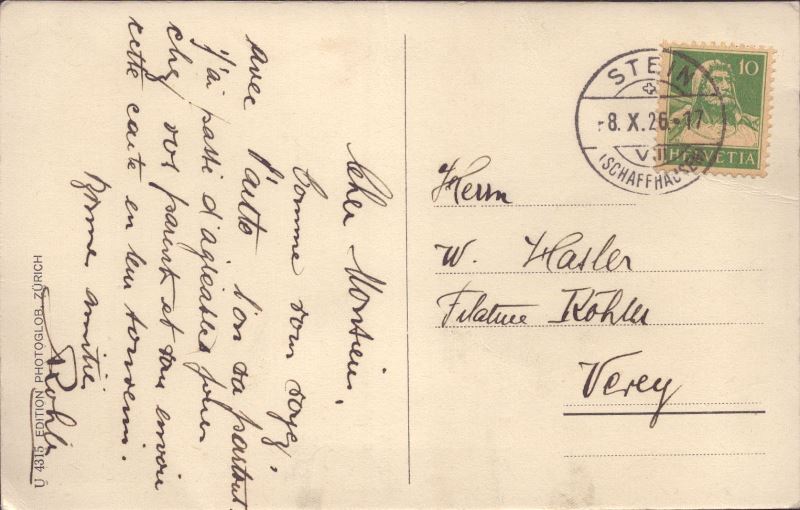 Cher Monsieur.
Comme vous voyez,
avec l'auto l'on va partout.
j'ai passé d'agréables jours
chez vos parents et vous envoie
cette carte en leur souvenir.
Bonne amitié
Köhler
U 4315 EDITION PHOTOGLOB, ZÜRICH
STEIN
-8. X. 26.-17
VII
(SCHAFFHAUSEN)
10
HELVETIA
Herrn
W. Hasler
Filature Köhler
Vevey